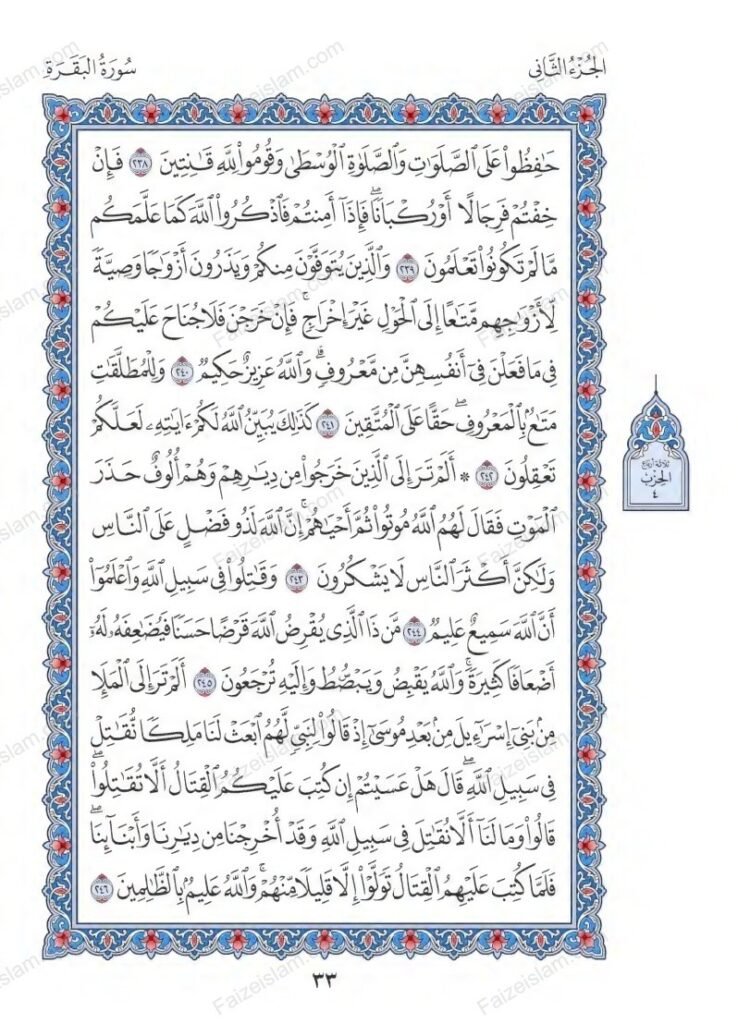 سُورَةُ البَقَرَةِ
الجُزْءُ الثَّانِي
حَٰفِظُواْ عَلَى ٱلصَّلَوَٰتِ وَٱلصَّلَوٰةِ ٱلۡوُسۡطَىٰ وَقُومُواْ لِلَّهِ قَٰنِتِينَ ٢٣٨ فَإِنۡ
خِفۡتُمۡ فَرِجَالًا أَوۡ رُكۡبَانٗاۖ فَإِذَآ أَمِنتُمۡ فَٱذۡكُرُواْ ٱللَّهَ كَمَا عَلَّمَكُم
مَّا لَمۡ تَكُونُواْ تَعۡلَمُونَ ٢٣٩ وَٱلَّذِينَ يُتَوَفَّوۡنَ مِنكُمۡ وَيَذَرُونَ أَزۡوَٰجٗا وَصِيَّةٗ
لِّأَزۡوَٰجِهِم مَّتَٰعًا إِلَى ٱلۡحَوۡلِ غَيۡرَ إِخۡرَاجٖۚ فَإِنۡ خَرَجۡنَ فَلَا جُنَاحَ عَلَيۡكُمۡ
فِي مَا فَعَلۡنَ فِيٓ أَنفُسِهِنَّ مِن مَّعۡرُوفٖۗ وَٱللَّهُ عَزِيزٌ حَكِيمٞ ٢٤٠ وَلِلۡمُطَلَّقَٰتِ
مَتَٰعُۢ بِٱلۡمَعۡرُوفِۖ حَقًّا عَلَى ٱلۡمُتَّقِينَ ٢٤١ كَذَٰلِكَ يُبَيِّنُ ٱللَّهُ لَكُمۡ ءَايَٰتِهِۦ لَعَلَّكُمۡ
تَعۡقِلُونَ ٢٤٢ * أَلَمۡ تَرَ إِلَى ٱلَّذِينَ خَرَجُواْ مِن دِيَٰرِهِمۡ وَهُمۡ أُلُوفٌ حَذَرَ
ٱلۡمَوۡتِ فَقَالَ لَهُمُ ٱللَّهُ مُوتُواْ ثُمَّ أَحۡيَٰهُمۡۚ إِنَّ ٱللَّهَ لَذُو فَضۡلٍ عَلَى ٱلنَّاسِ
وَلَٰكِنَّ أَكۡثَرَ ٱلنَّاسِ لَا يَشۡكُرُونَ ٢٤٣ وَقَٰتِلُواْ فِي سَبِيلِ ٱللَّهِ وَٱعۡلَمُوٓاْ
أَنَّ ٱللَّهَ سَمِيعٌ عَلِيمٞ ٢٤٤ مَّن ذَا ٱلَّذِي يُقۡرِضُ ٱللَّهَ قَرۡضًا حَسَنٗا فَيُضَٰعِفَهُۥ لَهُۥٓ
أَضۡعَافٗا كَثِيرَةٗۚ وَٱللَّهُ يَقۡبِضُ وَيَبۡصُۜطُ وَإِلَيۡهِ تُرۡجَعُونَ ٢٤٥ أَلَمۡ تَرَ إِلَى ٱلۡمَلَإِ
مِنۢ بَنِيٓ إِسۡرَٰٓءِيلَ مِنۢ بَعۡدِ مُوسَىٰٓ إِذۡ قَالُواْ لِنَبِيّٖ لَّهُمُ ٱبۡعَثۡ لَنَا مَلِكٗا نُّقَٰتِلۡ
فِي سَبِيلِ ٱللَّهِۖ قَالَ هَلۡ عَسَيۡتُمۡ إِن كُتِبَ عَلَيۡكُمُ ٱلۡقِتَالُ أَلَّا تُقَٰتِلُواْۖ
قَالُواْ وَمَا لَنَآ أَلَّا نُقَٰتِلَ فِي سَبِيلِ ٱللَّهِ وَقَدۡ أُخۡرِجۡنَا مِن دِيَٰرِنَا وَأَبۡنَآئِنَاۖ
فَلَمَّا كُتِبَ عَلَيۡهِمُ ٱلۡقِتَالُ تَوَلَّوۡاْ إِلَّا قَلِيلٗا مِّنۡهُمۡۚ وَٱللَّهُ عَلِيمُۢ بِٱلظَّٰلِمِينَ ٢٤٦
ثلاثة أرباع
الحِزْب
٤
٣٣
Faizeislam.com